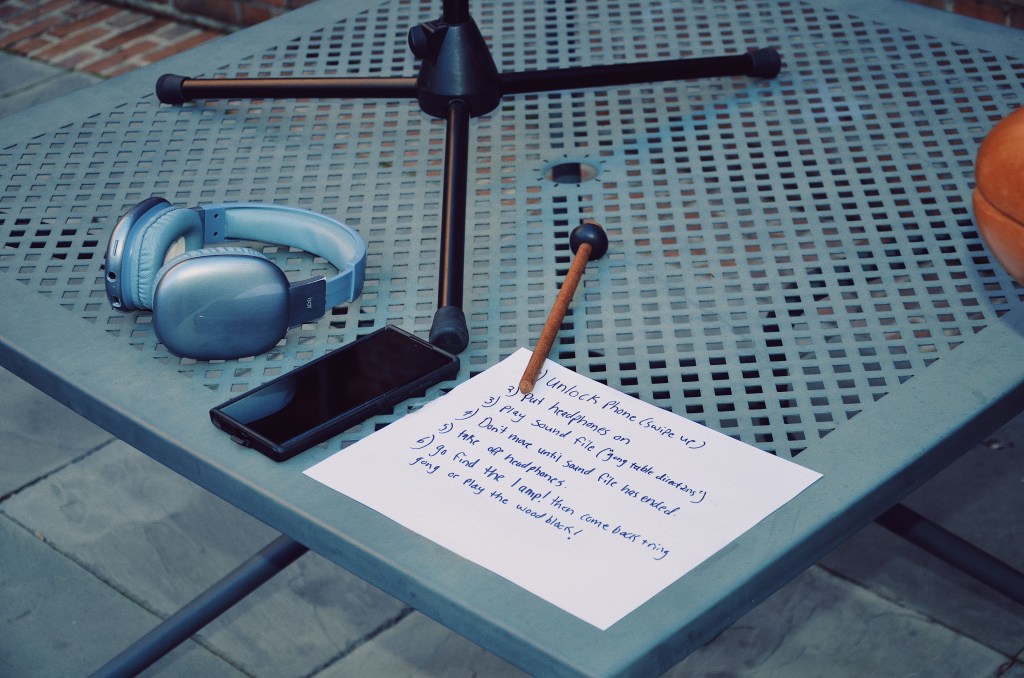 1) Unlock Phone (swipe up)
2) Put headphones on
3) Play sound file ("gong table directions")
4) Don't move until sound file has ended.
5) take off headphones.
6) go find the lamp! then come back + ring
gong or play the wood block!